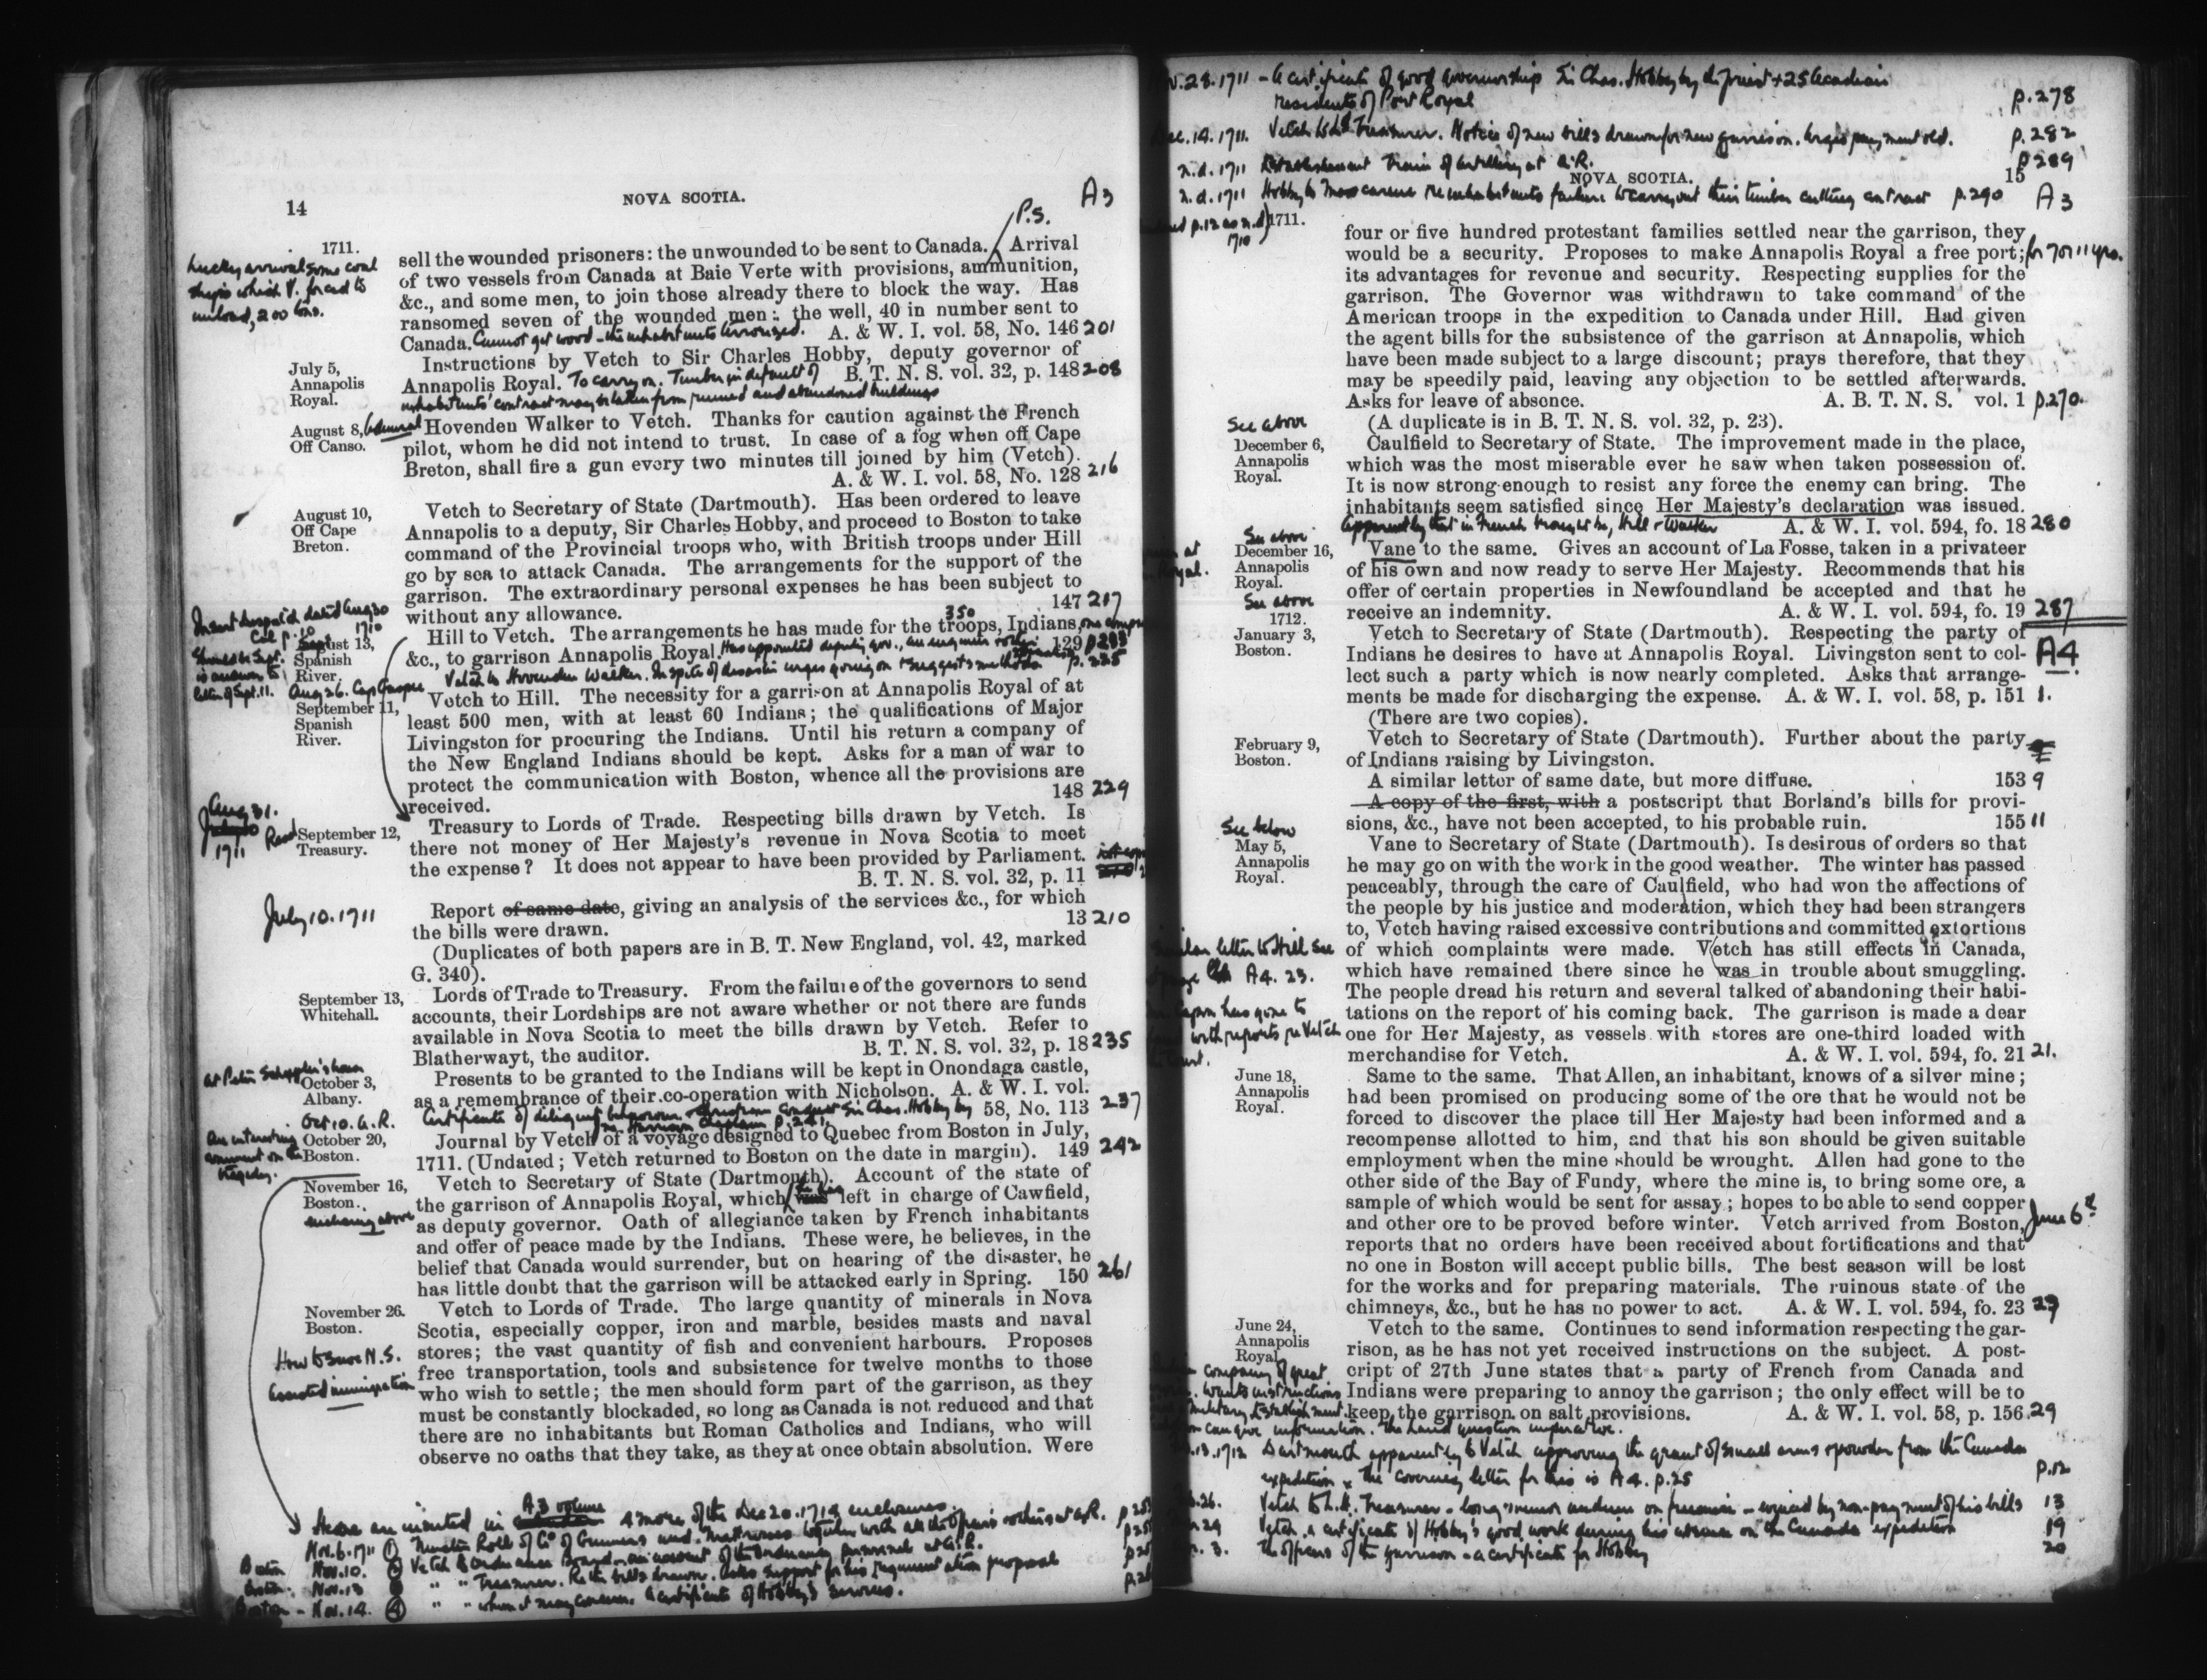 14
NOVA SCOTIA.
A3
P.S.
1711.
Lucky arrival some coal
ships which V. forced to
unload, 200 tons.
sell the wounded prisoners: the unwounded to be sent to Canada. Arrival
of two vessels from Canada at Baie Verte with provisions, ammunition,
&c., and some men, to join those already there to block the way. Has
ransomed seven of the wounded men; the well, 40 in number sent to
Canada. Cannot get wood - the inhabitants terrorized. A. & W. I. vol. 58, No. 146 201
July 5,
Annapolis
Royal.
Instructions by Vetch to Sir Charles Hobby, deputy governor of
Annapolis Royal. To carry on. Timber in default of B. T. N. S. vol. 32, p. 148 208
inhabitants' contract may be taken from ruined and abandoned buildings
August 8,
Off Canso.
Admiral Hovenden Walker to Vetch. Thanks for caution against the French
pilot, whom he did not intend to trust. In case of a fog when off Cape
Breton, shall fire a gun every two minutes till joined by him (Vetch).
A. & W. I. vol. 58, No. 128 216
August 10,
Off Cape
Breton.
Vetch to Secretary of State (Dartmouth). Has been ordered to leave
Annapolis to a deputy, Sir Charles Hobby, and proceed to Boston to take
command of the Provincial troops who, with British troops under Hill
go by sea to attack Canada. The arrangements for the support of the
garrison. The extraordinary personal expenses he has been subject to
without any allowance. 147 217
Insert despatch dated Aug 30
Cal p. 10 1710
August 13,
Spanish
River.
Should be Sept.
is answer to
letter of Sept. 11.
350
Hill to Vetch. The arrangements he has made for the troops, Indians,
&c., to garrison Annapolis Royal. Has appointed deputy gov., an engineer 129
Aug 26. Cap Gaspee Vetch to Hovenden Walker. In spite of disaster urges going on & suggests methods p. 225
September 11,
Spanish
River.
Vetch to Hill. The necessity for a garrison at Annapolis Royal of at
least 500 men, with at least 60 Indians; the qualifications of Major
Livingston for procuring the Indians. Until his return a company of
the New England Indians should be kept. Asks for a man of war to
protect the communication with Boston, whence all the provisions are
received. 148 229
Aug 31.
1711 Read
September 12,
Treasury.
Treasury to Lords of Trade. Respecting bills drawn by Vetch. Is
there not money of Her Majesty's revenue in Nova Scotia to meet
the expense? It does not appear to have been provided by Parliament.
B. T. N. S. vol. 32, p. 11
July 10. 1711
Report of same date, giving an analysis of the services &c., for which
the bills were drawn. 13 210
(Duplicates of both papers are in B. T. New England, vol. 42, marked
G. 340).
September 13,
Whitehall.
Lords of Trade to Treasury. From the failure of the governors to send
accounts, their Lordships are not aware whether or not there are funds
available in Nova Scotia to meet the bills drawn by Vetch. Refer to
Blatherwayt, the auditor. B. T. N. S. vol. 32, p. 18 235
at Peter Schuyler's house
October 3,
Albany.
Presents to be granted to the Indians will be kept in Onondaga castle,
as a remembrance of their co-operation with Nicholson. A. & W. I. vol.
58, No. 113 237
Oct 10. A.R. Certificate of diligent behaviour & Christian conduct Sir Chas. Hobby by
Harrison Chaplain p. 241
An interesting
comment on the
tragedy.
October 20,
Boston.
Journal by Vetch of a voyage designed to Quebec from Boston in July,
1711. (Undated; Vetch returned to Boston on the date in margin). 149 242
November 16,
Boston.
enclosing above
Vetch to Secretary of State (Dartmouth). Account of the state of
the garrison of Annapolis Royal, which he has left in charge of Cawfield,
as deputy governor. Oath of allegiance taken by French inhabitants
and offer of peace made by the Indians. These were, he believes, in the
belief that Canada would surrender, but on hearing of the disaster, he
has little doubt that the garrison will be attacked early in Spring. 150 261
November 26.
Boston.
How to save N.S.
Assisted immigration
Vetch to Lords of Trade. The large quantity of minerals in Nova
Scotia, especially copper, iron and marble, besides masts and naval
stores; the vast quantity of fish and convenient harbours. Proposes
free transportation, tools and subsistence for twelve months to those
who wish to settle; the men should form part of the garrison, as they
must be constantly blockaded, so long as Canada is not reduced and that
there are no inhabitants but Roman Catholics and Indians, who will
observe no oaths that they take, as they at once obtain absolution. Were
Here are inserted in A3 volume 4 more of the Dec 20. 1714 enclosures.
Nov. 6. 1711 (1) Muster Roll of Co of Gunners and Matrosses together with all the officers others at A.R.
Boston Nov. 10. (2) Vetch to Ordnance Board - an account of the ordnance personnel at A.R.
Boston: Nov. 13 " " Treasurer. Re the bills drawn. Asks support for his proposal
Boston - Nov. 14. (4) " " whom it may concern. A certificate of Hobby's services.
Nov. 28. 1711 - A certificate of good governorship Sir Chas. Hobby by the priest + 25 Acadian
residents of Port Royal p. 278
Dec. 14. 1711. Vetch to Ld Treasurer. Notice of new bills drawn for new garrison. Urges payment old. p. 282
n.d. 1711 Establishment Train of Artillery at A.R. p 289
NOVA SCOTIA. 15
n.d. 1711 Hobby to Mascarene re inhabitants failure to carry out their timber cutting contract p. 290 A3
p. 12 as n.d.
1710
1711.
four or five hundred protestant families settled near the garrison, they
would be a security. Proposes to make Annapolis Royal a free port; for 7 or 11 yrs.
its advantages for revenue and security. Respecting supplies for the
garrison. The Governor was withdrawn to take command of the
American troops in the expedition to Canada under Hill. Had given
the agent bills for the subsistence of the garrison at Annapolis, which
have been made subject to a large discount; prays therefore, that they
may be speedily paid, leaving any objection to be settled afterwards.
Asks for leave of absence. A. B. T. N. S. vol. 1 p. 270.
(A duplicate is in B. T. N. S. vol. 32, p. 23).
See above
December 6,
Annapolis
Royal.
Caulfield to Secretary of State. The improvement made in the place,
which was the most miserable ever he saw when taken possession of.
It is now strong enough to resist any force the enemy can bring. The
inhabitants seem satisfied since Her Majesty's declaration was issued.
apparently that in French brought by Hill & Walker A. & W. I. vol. 594, fo. 18 280
See above
December 16,
Annapolis
Royal.
Vane to the same. Gives an account of La Fosse, taken in a privateer
of his own and now ready to serve Her Majesty. Recommends that his
offer of certain properties in Newfoundland be accepted and that he
receive an indemnity. A. & W. I. vol. 594, fo. 19 287
See above
1712.
January 3,
Boston.
A4
Vetch to Secretary of State (Dartmouth). Respecting the party of
Indians he desires to have at Annapolis Royal. Livingston sent to col-
lect such a party which is now nearly completed. Asks that arrange-
ments be made for discharging the expense. A. & W. I. vol. 58, p. 151 1.
(There are two copies).
February 9,
Boston.
Vetch to Secretary of State (Dartmouth). Further about the party
of Indians raising by Livingston.
A similar letter of same date, but more diffuse. 153 9
A copy of the first, with a postscript that Borland's bills for provi-
sions, &c., have not been accepted, to his probable ruin. 155 11
See below
May 5,
Annapolis
Royal.
Vane to Secretary of State (Dartmouth). Is desirous of orders so that
he may go on with the work in the good weather. The winter has passed
peaceably, through the care of Caulfield, who had won the affections of
the people by his justice and moderation, which they had been strangers
to, Vetch having raised excessive contributions and committed extortions
of which complaints were made. Vetch has still effects in Canada,
which have remained there since he was in trouble about smuggling.
The people dread his return and several talked of abandoning their habi-
tations on the report of his coming back. The garrison is made a dear
one for Her Majesty, as vessels with stores are one-third loaded with
merchandise for Vetch. A. & W. I. vol. 594, fo. 21 21.
letter to Hill see
A4. 23.
has gone to
with reports re Vetch
June 18,
Annapolis
Royal.
Same to the same. That Allen, an inhabitant, knows of a silver mine;
had been promised on producing some of the ore that he would not be
forced to discover the place till Her Majesty had been informed and a
recompense allotted to him, and that his son should be given suitable
employment when the mine should be wrought. Allen had gone to the
other side of the Bay of Fundy, where the mine is, to bring some ore, a
sample of which would be sent for assay; hopes to be able to send copper
and other ore to be proved before winter. Vetch arrived from Boston, June 6th
reports that no orders have been received about fortifications and that
no one in Boston will accept public bills. The best season will be lost
for the works and for preparing materials. The ruinous state of the
chimneys, &c., but he has no power to act. A. & W. I. vol. 594, fo. 23 23
June 24,
Annapolis
Royal
Vetch to the same. Continues to send information respecting the gar-
rison, as he has not yet received instructions on the subject. A post-
cript of 27th June states that a party of French from Canada and
Indians were preparing to annoy the garrison; the only effect will be to
keep the garrison on salt provisions. A. & W. I. vol. 58, p. 156. 29
company of great
wants instructions
military establishment.
can give information. The Land question imperative.
13. 1712 Dartmouth apparently to Vetch approving the grant of small arms & powder from the Canada
expedition & the covering letter for this is A4. p. 25 p. 12
26. Vetch to Ld. Treasurer - long memorandum on finance - by non-payment of his bills 13
29 Vetch, a certificate of Hobby's good work during his absence on the Canada expedition 19
3. The officers of the garrison - a certificate for Hobby 20